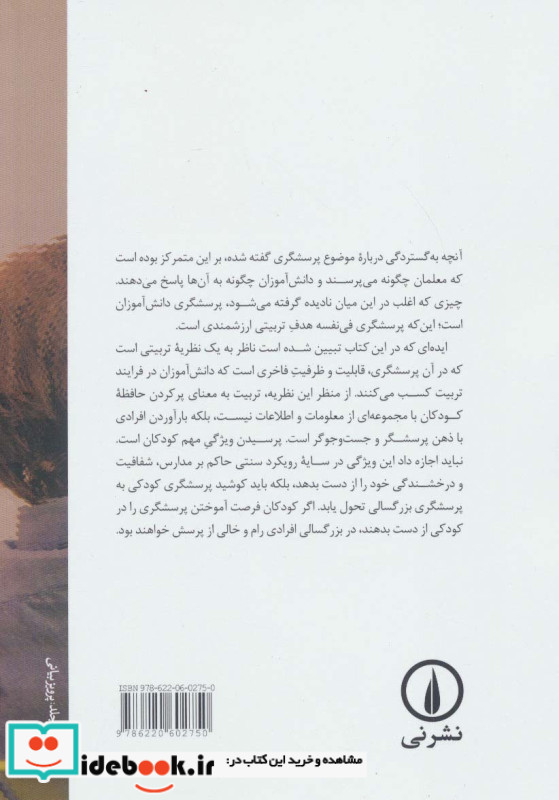 آنچه به‌گستردگی دربارهٔ موضوع پرسشگری گفته شده، بر این متمرکز بوده است
که معلمان چگونه می‌پرسند و دانش‌آموزان چگونه به آن‌ها پاسخ می‌دهند.
چیزی که اغلب در این میان نادیده گرفته می‌شود، پرسشگری دانش‌آموزان
است؛ این‌که پرسشگری فی‌نفسه هدفِ تربیتی ارزشمندی است.
ایده‌ای که در این کتاب تبیین شده است ناظر به یک نظریهٔ تربیتی است
که در آن پرسشگری، قابلیت و ظرفیتِ فاخری است که دانش‌آموزان در فرایند
تربیت کسب می‌کنند. از منظر این نظریه، تربیت به معنای پرکردن حافظهٔ
کودکان با مجموعه‌ای از معلومات و اطلاعات نیست، بلکه بارآوردن افرادی
با ذهن پرسشگر و جست‌وجوگر است. پرسیدن ویژگیِ مهم کودکان است.
نباید اجازه داد این ویژگی در سایهٔ رویکرد سنتی حاکم بر مدارس، شفافیت
و درخشندگی خود را از دست بدهد، بلکه باید کوشید پرسشگری کودکی به
پرسشگری بزرگسالی تحول یابد. اگر کودکان فرصت آموختن پرسشگری را در
کودکی از دست بدهند، در بزرگسالی افرادی رام و خالی از پرسش خواهند بود.
جلد: پرویز بیانی
ISBN 978-622-06-0275-0
9 786220 602750
نشرنی
مشاهده و خرید این کتاب در:
idebook.ir